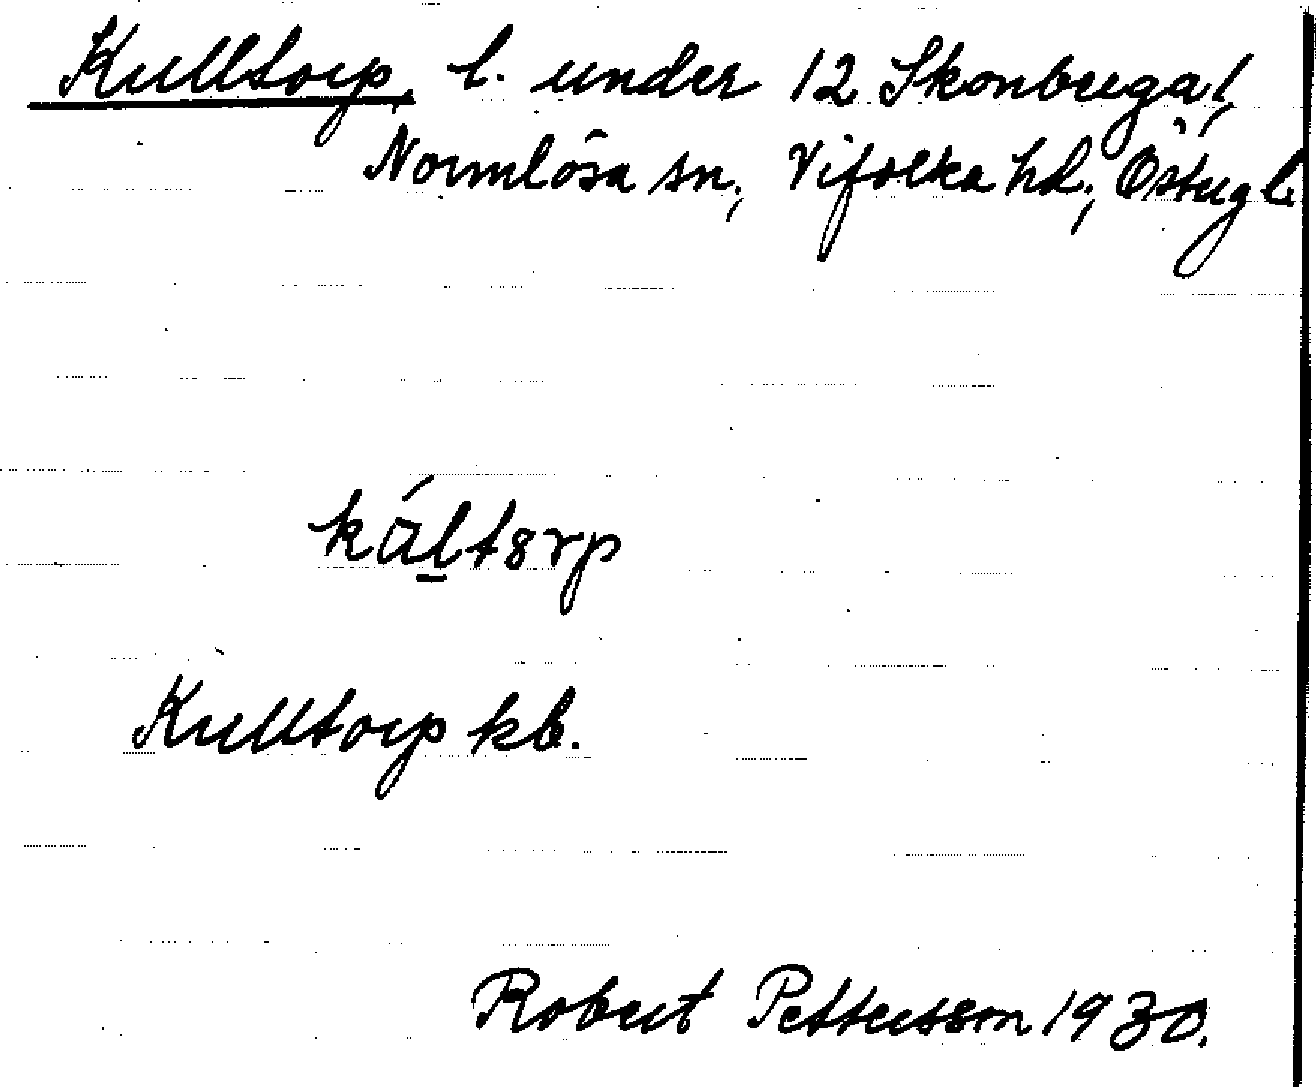 Kulltorp, l. under 12 Skonberga!,
Normlösa sn., Vifolka hd., Östergl.
kált8rp
Kulltorp kb.
Robert Pettersson 1930.